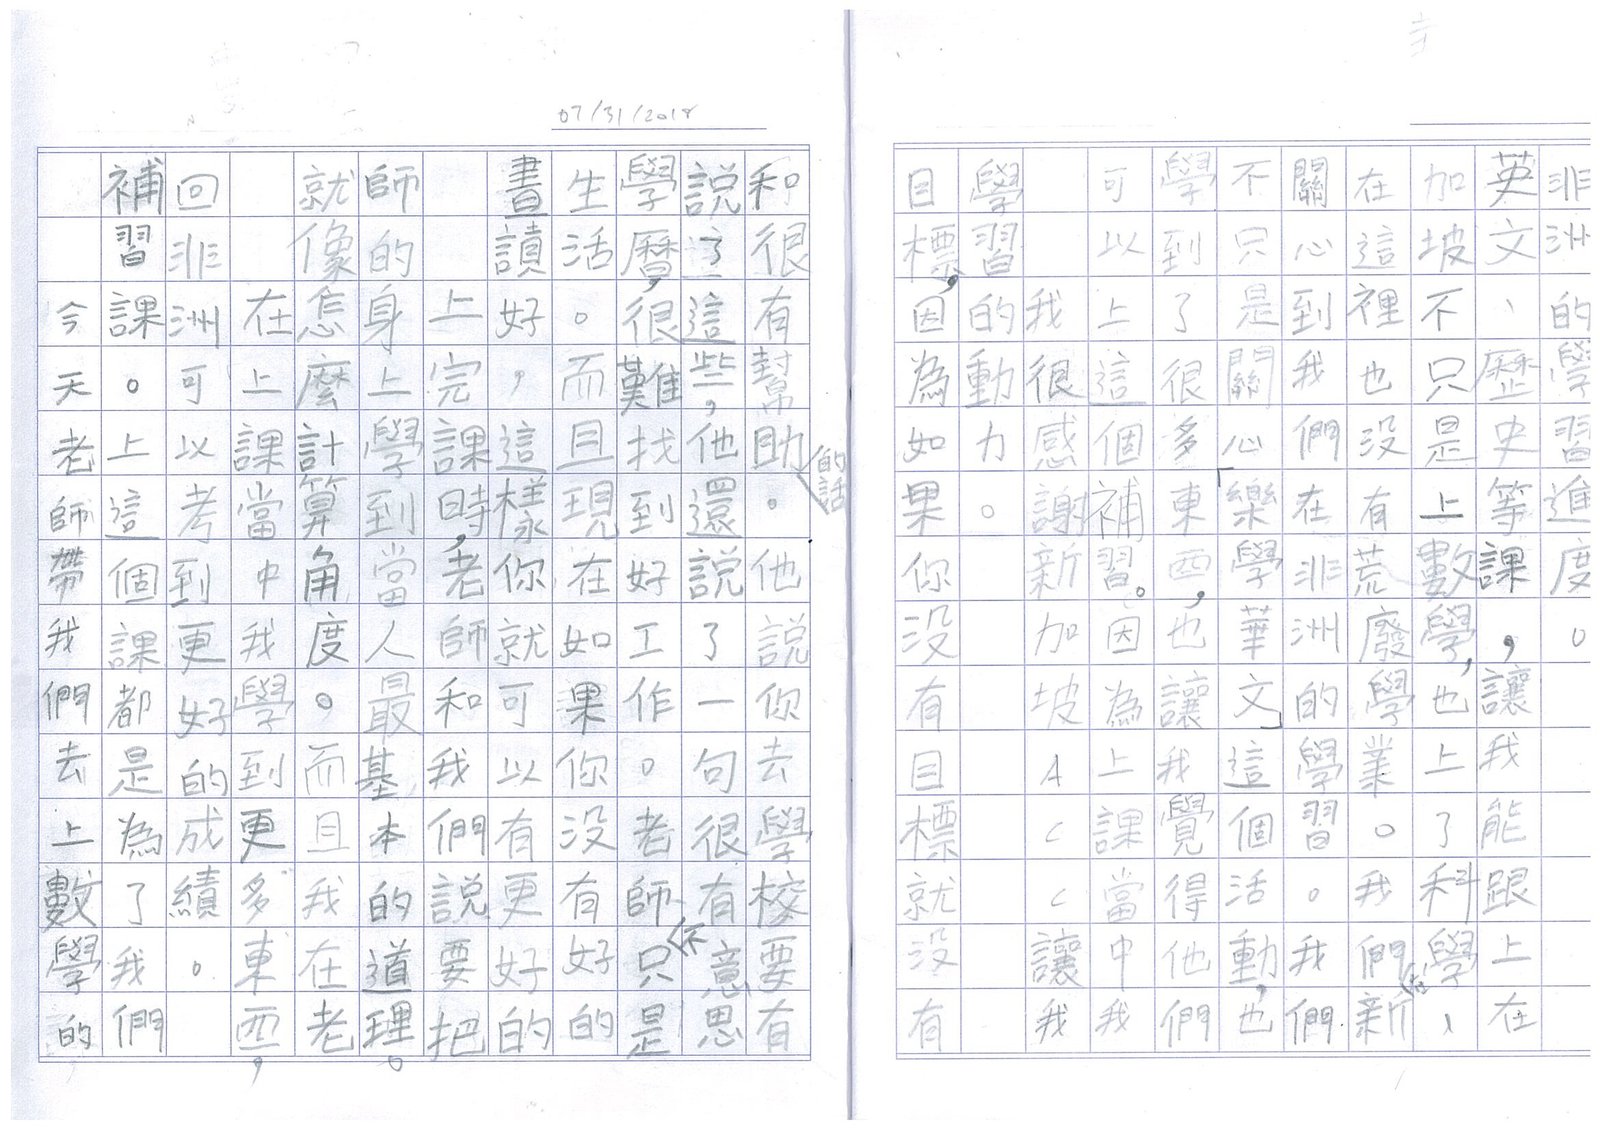 07/31/2018
今天老師帶我們去上數學的
補習課。上這個課都是為了我們
回非洲可以考到更好的成績。
在上課當中我學到更多東西,
就像怎麼計算角度。而且我在老
師的身上學到當人最基本的道理。
上完課時,老師和我們說要把
晝讀好,這樣你就可以有更好的
生活。而且現在如果你没有好的
學曆,很難找到好工作。老師不只是
說了這些,他還說了一句很有意思
和很有幫助的話。他說你去學校要有
目標,因為如果你没有目標就没有
學習的動力。
我很感謝新加坡ACC讓我
可以上這個補習。因為上課當中我
學到了很多東西,也讓我覺得他們
不只是關心「樂學華文」這個活動,也
關心到我們在非洲的學習。我們
在這裡也没有荒廢學業。我們去新
加坡不只是上數學,也上了科學、
英文、歷史等課,讓我能跟上在
非洲的學習進度。